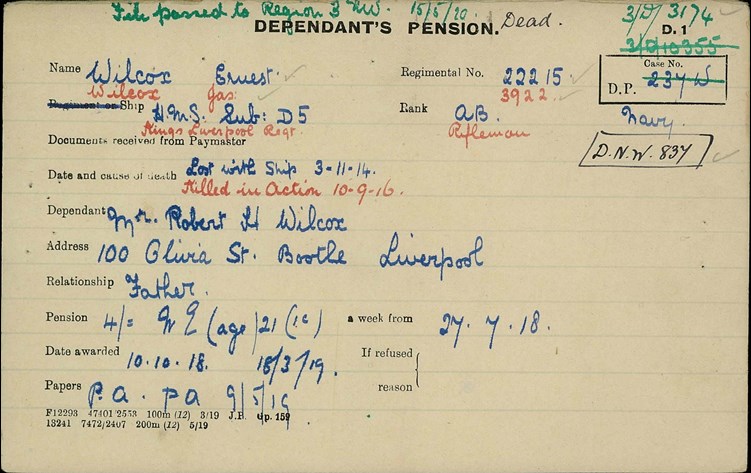 File passed to Region 3 NW. 15/5/20. Dead. 3/D/3174
DEPENDANT'S PENSION. D. 1
3/D/10355
Name Wilcox Ernest Regimental No. 22215 Case No.
Wilcox Jas: 3922 D.P. 237W
Regiment or Ship H.M.S. Sub: D5 Rank AB. Navy.
Kings Liverpool Regt. Rifleman
Documents received from Paymaster D.N.W. 837
Date and cause of death Lost with Ship 3-11-14.
Killed in Action 10-9-16.
Dependant Mr. Robert H Wilcox
Address 100 Olivia St. Bootle Liverpool
Relationship Father.
Pension 4/= (age) 21 (1c) a week from 27.7.18.
Date awarded 10.10.18. 18/3/19. If refused
reason
Papers P.A. PA 9/5/19
F12293 47401/2553 100m (12) 3/19 J.P. Gp. 159
13241 7472/2407 200m (12) 5/19